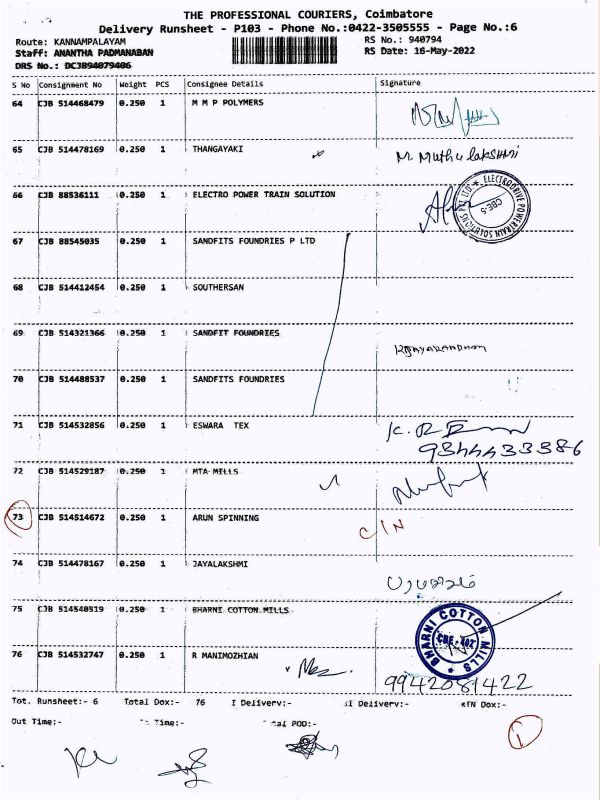 THE PROFESSIONAL COURIERS, Coimbatore
Delivery Runsheet - P103 - Phone No.:0422-3505555 - Page No.:6
Route: KANNAMPALAYAM RS No.: 940794
Staff: ANANTHA PADMANABAN RS Date: 16-May-2022
DRS No.: DCJB94079406
S No Consignment No Weight PCS Consignee Details Signature
64 CJB 514468479 0.250 1 M M P POLYMERS
65 CJB 514478169 0.250 1 THANGAYAKI M. Muthulakshmi
66 CJB 88536111 0.250 1 ELECTRO POWER TRAIN SOLUTION
ELECTRODRIVE POWERTRAIN SOLUTIONS PVT LTD. ★ CBE-5
67 CJB 88545035 0.250 1 SANDFITS FOUNDRIES P LTD
68 CJB 514412454 0.250 1 SOUTHERSAN
69 CJB 514321366 0.250 1 SANDFIT FOUNDRIES
70 CJB 514488537 0.250 1 SANDFITS FOUNDRIES
71 CJB 514532856 0.250 1 ESWARA TEX
9344433386
72 CJB 514529187 0.250 1 MTA MILLS
73 CJB 514514672 0.250 1 ARUN SPINNING C/N
74 CJB 514478167 0.250 1 JAYALAKSHMI
75 CJB 514540519 0.250 1 BHARNI COTTON MILLS
★ BHARNI COTTON MILLS CBE-402
76 CJB 514532747 0.250 1 R MANIMOZHIAN
9942081422
Tot. Runsheet:- 6 Total Dox:- 76 I Delivery:- II Delivery:- RTN Dox:-
Out Time:- Time:- Total POD:-
1